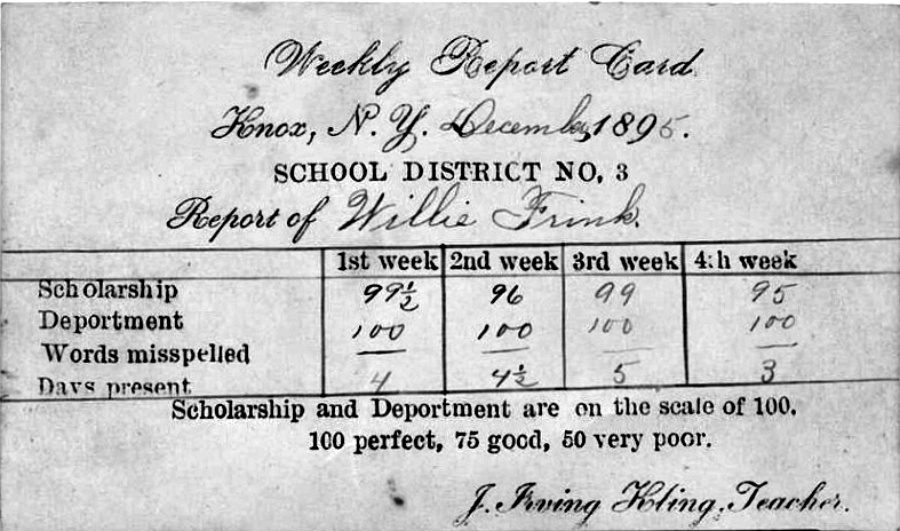 Weekly Report Card.
Knox, N. Y. December 1895.
SCHOOL DISTRICT NO. 3
Report of Willie Frink.
1st week 2nd week 3rd week 4th week
Scholarship 99½ 96 99 95
Department 100 100 100 100
Words misspelled — — — —
Days present 4 4½ 5 3
Scholarship and Deportment are on the scale of 100.
100 perfect, 75 good, 50 very poor.
J. Irving Kling, Teacher.